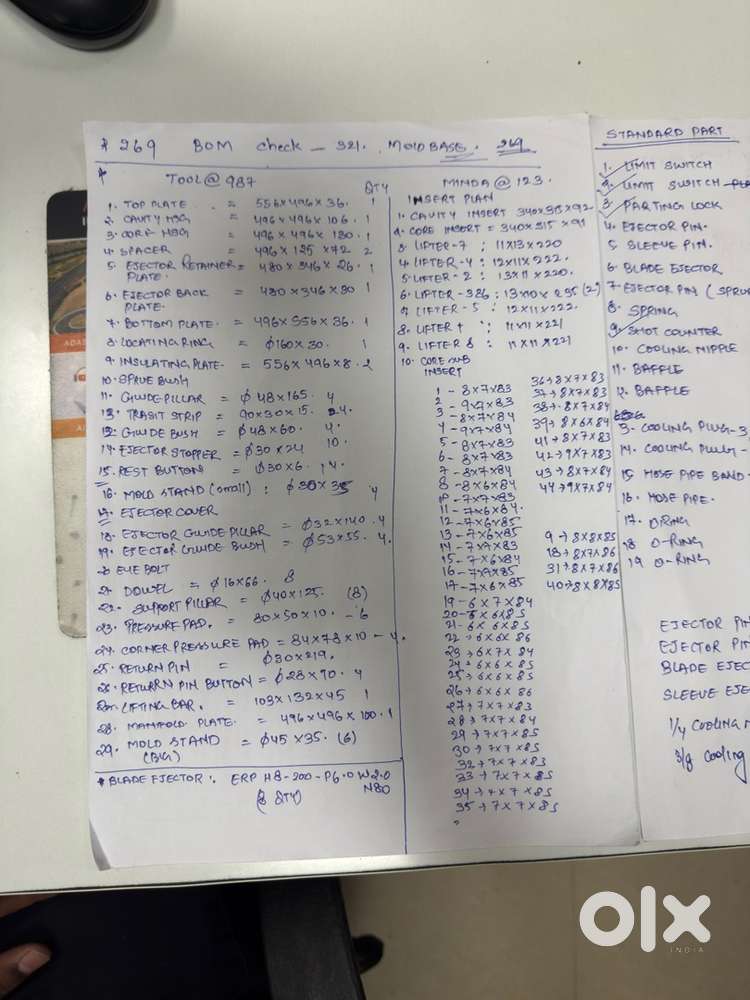 * 269 BOM check - 321. MOLD BASE. 269
TOOL @ 987
QTY
1. TOP PLATE = 556 x 496 x 36. 1
2. CAVITY HSG = 496 x 496 x 106. 1
3. CORE HSG = 496 x 496 x 130. 1
4. SPACER = 496 x 125 x 72 2
5 EJECTOR RETAINER = 480 x 346 x 26. 1
PLATE.
6. EJECTOR BACK = 480 x 346 x 30 1
PLATE.
7. BOTTOM PLATE. = 496 x 556 x 36. 1
8. LOCATING RING = ϕ160 x 30. 1
9. INSULATING PLATE. = 556 x 496 x 8. 2
10. SPRUE BUSH
11. GUIDE PILLAR = ϕ48 x 165. 4
13. TRASIT STRIP = 90 x 30 x 15. 24.
12. GUIDE BUSH = ϕ48 x 60. 4.
14. EJECTOR STOPPER = ϕ30 x 24 10.
15. REST BUTTON = ϕ30 x 6. 14.
16. MOLD STAND (small) : ϕ30 x 35 4
17. EJECTOR COVER
18. EJECTOR GUIDE PILLAR = ϕ32 x 140. 4
19. EJECTOR GUIDE BUSH = ϕ53 x 55. 4.
20 EYE BOLT
21. DOWEL = ϕ16 x 66. 8
22. SUPPORT PILLAR = ϕ40 x 125. (8)
23. PRESSURE PAD. = 80 x 50 x 10. - 6
24. CORNER PRESSURE PAD = 84 x 78 x 10 - 4.
25. RETURN PIN = ϕ30 x 219.
26. RETURRN PIN BUTTON = ϕ28 x 90. 4
27. LIFTING BAR. = 103 x 132 x 45 1
28. MANIFOLD PLATE. = 496 x 496 x 100. 1
29. MOLD STAND = ϕ45 x 35. (6)
(BIG)
* BLADE EJECTOR : ERP H8-200-P6.0 W2.0
N80
(8 QTY)
MINDA @ 123.
INSERT PLAN
1. CAVITY INSERT 340 x 315 x 92
2. CORE INSERT = 340 x 315 x 91
3 LIFTER-7 : 11 x 13 x 220
4 LIFTER-4 : 12 x 11 x 222.
5 LIFTER-2 : 13 x 11 x 220.
6. LIFTER-3&6 : 13 x 10 x 235 (2)
7 LIFTER-5 : 12 x 11 x 222.
8. LIFTER 1 : 11 x 11 x 221
9. LIFTER 8 : 11 x 11 x 221
10. CORE SUB
INSERT
1 - 8 x 7 x 83
2 - 9 x 7 x 83
3 - 8 x 7 x 84
4 - 9 x 7 x 84
5 - 8 x 7 x 83
6 - 8 x 7 x 83
7 - 8 x 7 x 84
8 - 8 x 6 x 84
10 - 7 x 7 x 83
11 - 7 x 6 x 84.
12 - 7 x 6 x 85
13 - 7 x 6 x 85
14 - 7 x 7 x 83
15 - 7 x 6 x 84
16 - 7 x 7 x 85
17 - 7 x 6 x 85
19 - 6 x 7 x 84
20 - 6 x 6 x 85
21 - 6 x 6 x 85
22 → 6 x 6 x 86
23 → 6 x 7 x 84
24 → 6 x 6 x 85
25 → 6 x 6 x 85
26 → 6 x 6 x 86
27 → 7 x 7 x 83
28 → 7 x 7 x 84
29 → 7 x 7 x 85
30 → 7 x 7 x 85
32 → 7 x 7 x 83
33 → 7 x 7 x 85
34 → 7 x 7 x 85
35 → 7 x 7 x 85
36 → 8 x 7 x 83
37 → 8 x 7 x 83
38 → 8 x 7 x 84
39 → 8 x 6 x 84
41 → 8 x 7 x 83
42 → 9 x 7 x 83
43 → 8 x 7 x 84
44 → 9 x 7 x 84
9 → 8 x 8 x 85
18 → 8 x 7 x 86
31 → 8 x 7 x 86
40 → 8 x 8 x 85
STANDARD PART
1. LIMIT SWITCH
2. LIMIT SWITCH
3. PARTING LOCK
4. EJECTOR PIN.
5 SLEEVE PIN.
6. BLADE EJECTOR
7. EJECTOR PIN (SPRUE
8. SPRING
9. SHOT COUNTER
10. COOLING NIPPLE
11. BAFFLE
12. BAFFLE
3. COOLING PLUG - 3
14. COOLING PLUG -
15 HOSE PIPE BAND -
16. HOSE PIPE.
17. O RING
18 O-RING
19 O-RING
EJECTOR PIN
EJECTOR PIN
BLADE EJEC
SLEEVE EJE
1/4 COOLING N
3/8 cooling
olx
INDIA